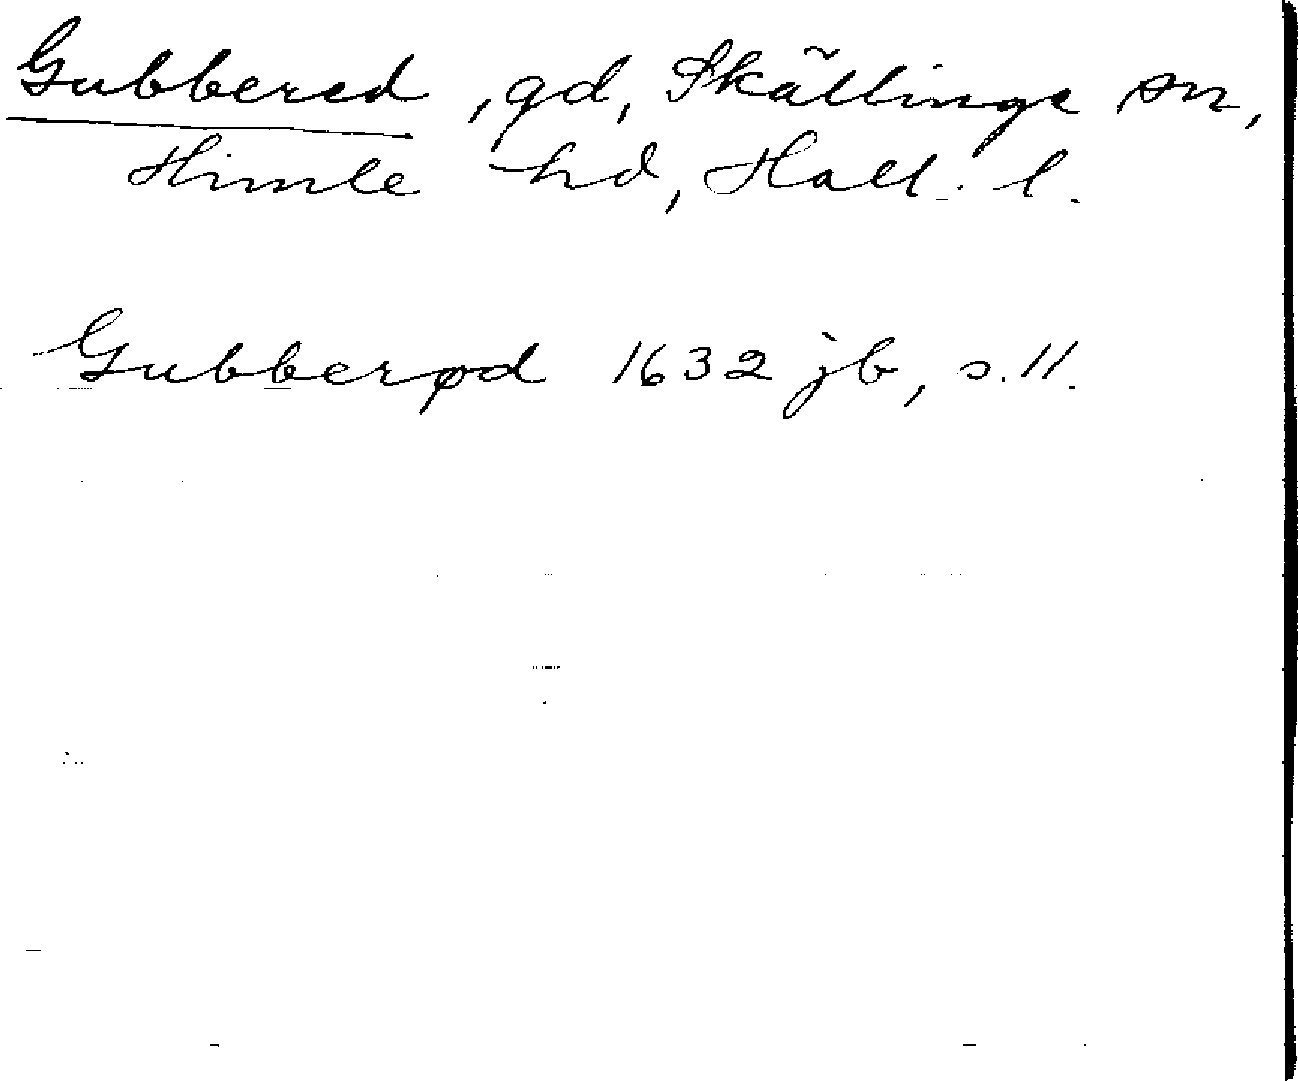 Gubbered, gd, Skällinge sn,
Himle hd, Hall. l.
Gubberød 1632 jb, s. 11.